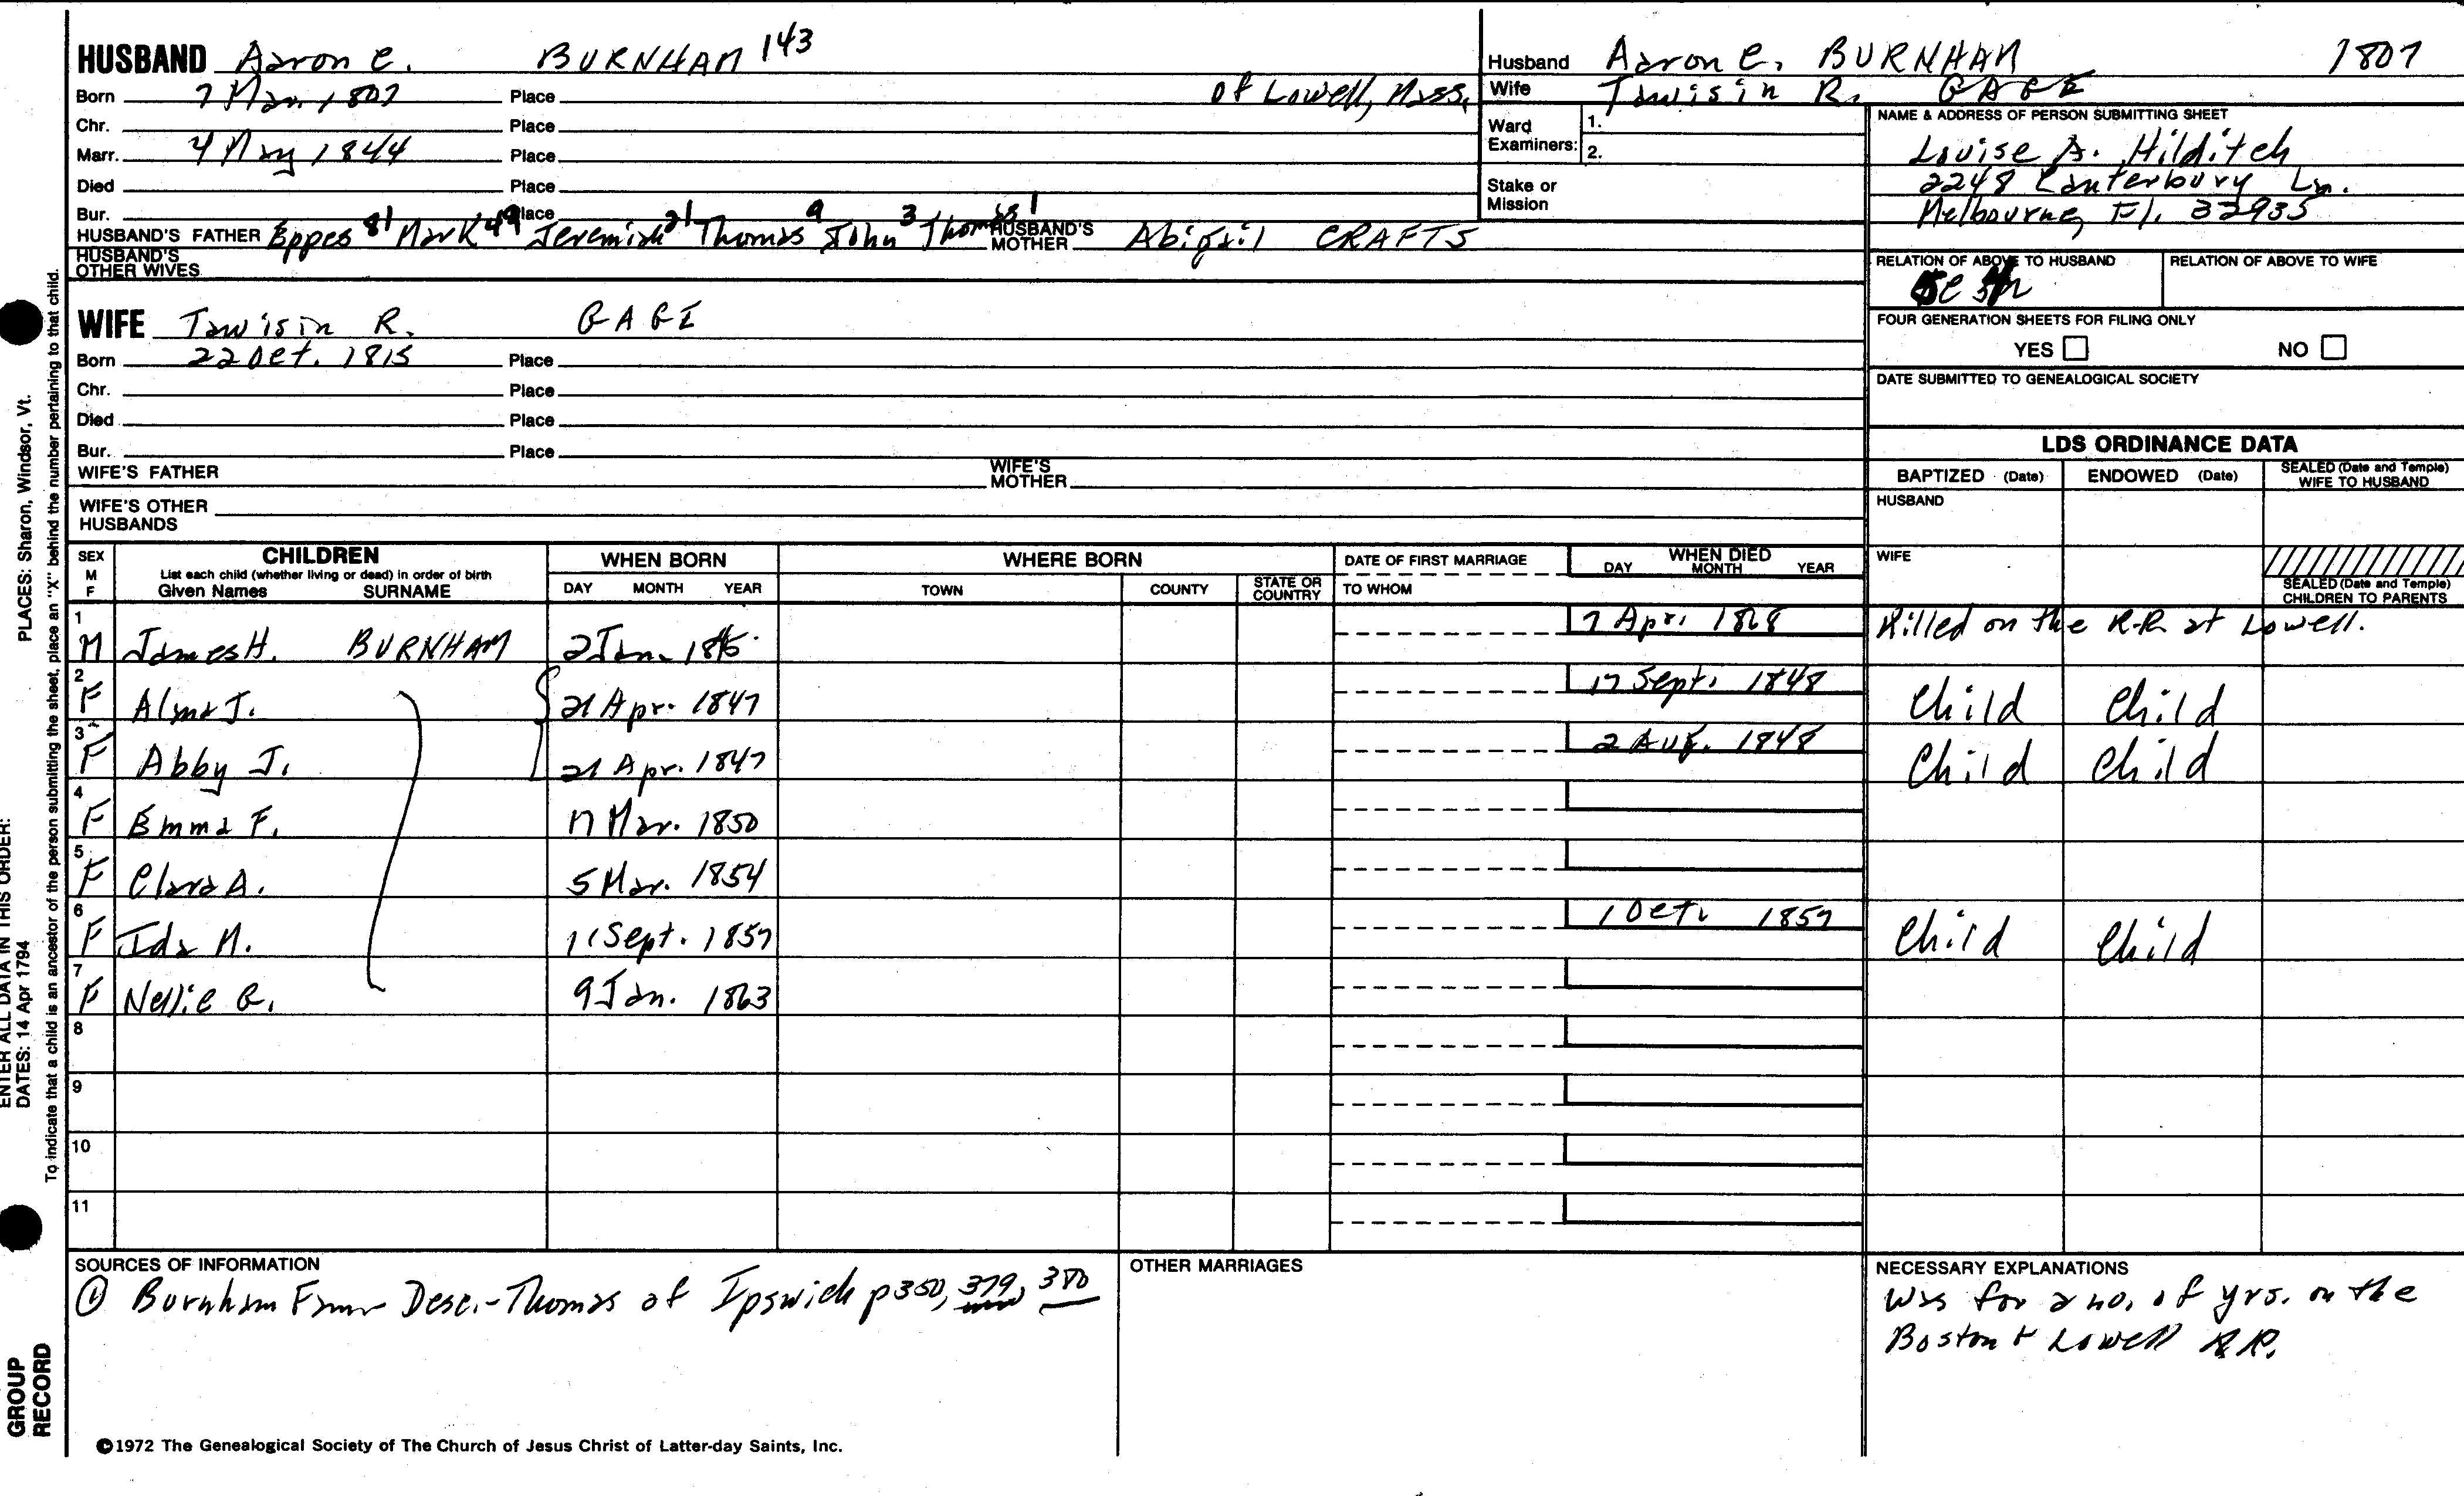 HUSBAND Aaron C. BURNHAM 143
Born 7 Mar. 1807 Place of Lowell, Mass.
Chr. Place
Marr. 4 May 1844 Place
Died Place
Bur. Place
HUSBAND'S FATHER Eppes 81 Mark 49 Jeremiah 21 Thomas 9 John 3 Thomas 1 HUSBAND'S MOTHER Abigail CRAFTS
HUSBAND'S OTHER WIVES
WIFE Tawisin R. GAGE
Born 22 Oct. 1815 Place
Chr. Place
Died Place
Bur. Place
WIFE'S FATHER WIFE'S MOTHER
WIFE'S OTHER HUSBANDS
Husband Aaron C. BURNHAM 1807
Wife Tawisin R. GAGE
Ward Examiners: 1.
2.
Stake or Mission
NAME & ADDRESS OF PERSON SUBMITTING SHEET
Louise A. Hilditch
2248 Canterbury Ln.
Melbourne, Fl. 32935
RELATION OF ABOVE TO HUSBAND RELATION OF ABOVE TO WIFE
FOUR GENERATION SHEETS FOR FILING ONLY
YES NO
DATE SUBMITTED TO GENEALOGICAL SOCIETY
LDS ORDINANCE DATA
BAPTIZED (Date) ENDOWED (Date) SEALED (Date and Temple) WIFE TO HUSBAND
HUSBAND
WIFE
SEALED (Date and Temple) CHILDREN TO PARENTS
SEX M F
CHILDREN
List each child (whether living or dead) in order of birth
Given Names SURNAME
WHEN BORN
DAY MONTH YEAR
WHERE BORN
TOWN COUNTY STATE OR COUNTRY
DATE OF FIRST MARRIAGE
TO WHOM
WHEN DIED
DAY MONTH YEAR
1 M James H. BURNHAM 2 Jan. 1845 7 Apr. 1868 Killed on the R.R. at Lowell.
2 F Alma J. 21 Apr. 1847 17 Sept. 1848 Child Child
3 F Abby J. 21 Apr. 1847 2 Aug. 1848 Child Child
4 F Emma F. 17 Mar. 1850
5 F Clara A. 5 Mar. 1854
6 F Ida M. 11 Sept. 1857 1 Oct. 1857 Child Child
7 F Nellie G. 9 Jan. 1863
8
9
10
11
SOURCES OF INFORMATION
① Burnham Fam Desc.-Thomas of Ipswich p350, 379, 380
OTHER MARRIAGES
NECESSARY EXPLANATIONS
Was for a no. of yrs. on the
Boston & Lowell R.R.
©1972 The Genealogical Society of The Church of Jesus Christ of Latter-day Saints, Inc.
PLACES: Sharon, Windsor, Vt.
To indicate that a child is an ancestor of the person submitting the sheet, place an "X" behind the number pertaining to that child.
ENTER ALL DATA IN THIS ORDER:
DATES: 14 Apr 1794
GROUP
RECORD